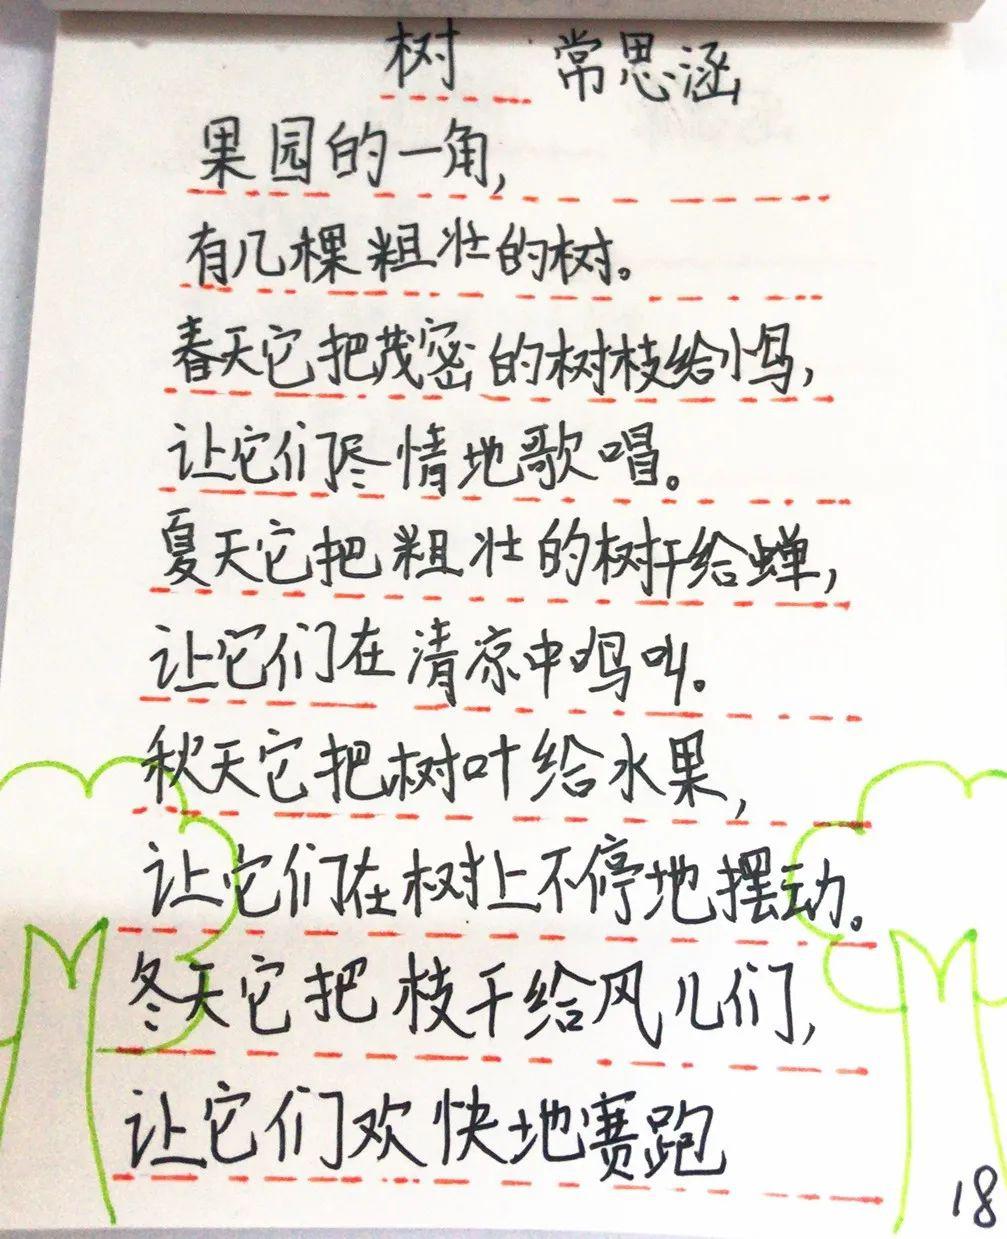 树 常思涵
果园的一角,
有几棵粗壮的树。
春天它把茂密的树枝给小鸟,
让它们尽情地歌唱。
夏天它把粗壮的树干给蝉,
让它们在清凉中鸣叫。
秋天它把树叶给水果,
让它们在树上不停地摆动。
冬天它把枝干给风儿们,
让它们欢快地赛跑
18